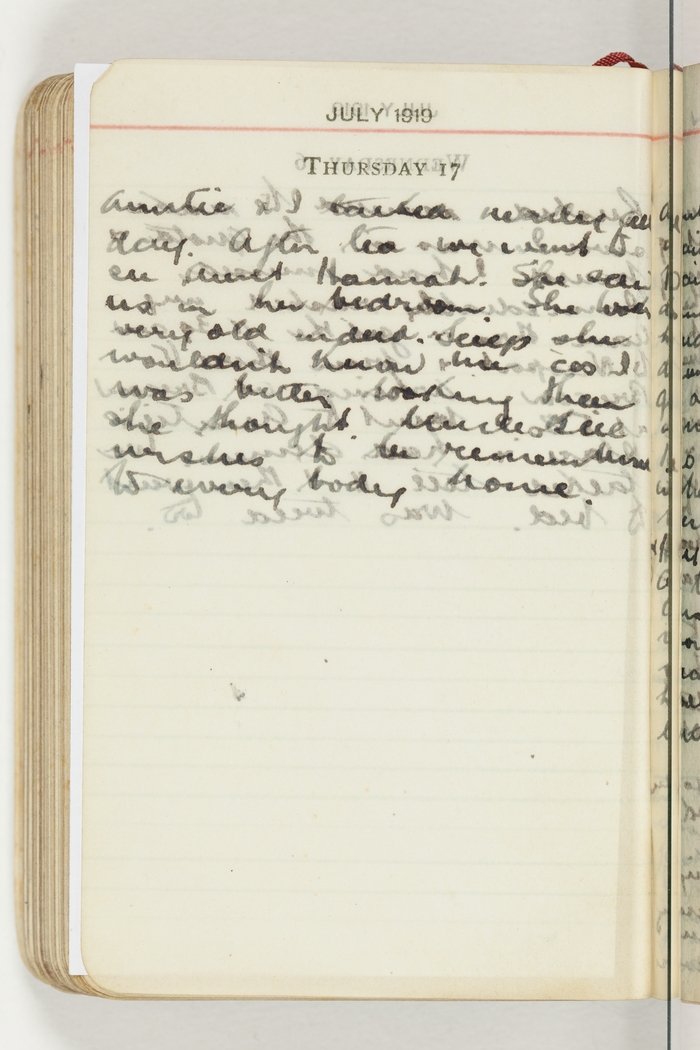 JULY 1919
THURSDAY 17
Auntie & I nearly all
day. After tea we went to
see Aunt Hannah. She saw
us in her bedroom. She was
very old indeed. Says she
wouldn't know him cos I
was better looking than
she thought.
wishes to be remembered
to every body home.